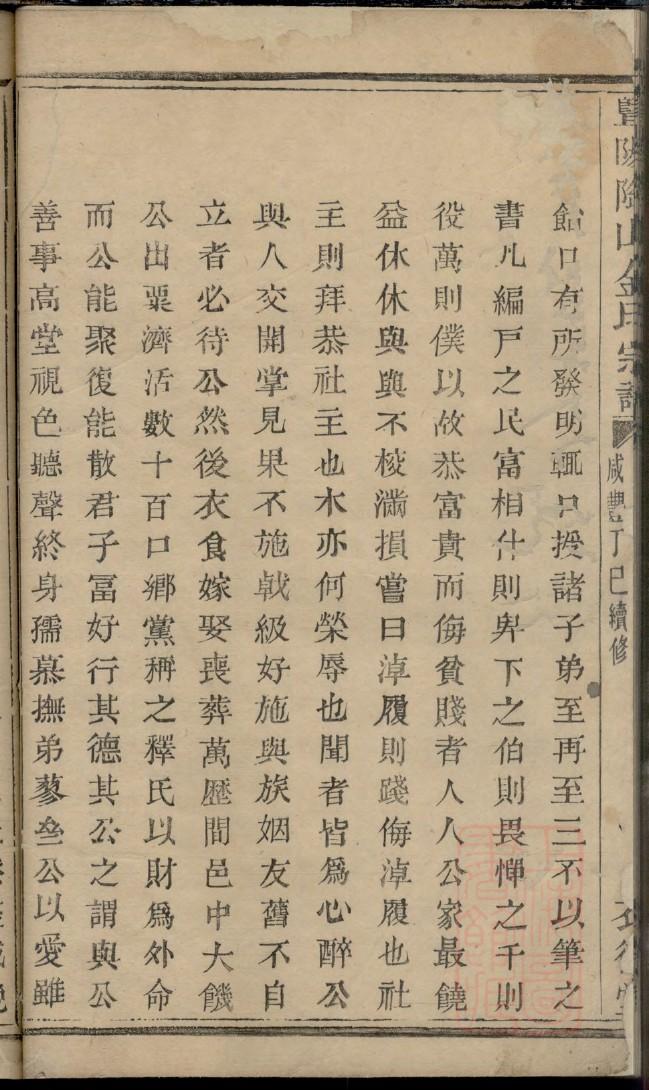 暨陽陶山金氏宗譜 咸豐丁巳續修
飴口有所發明輒口授諸子弟至再至三不以筆之
書凡編戸之民富相什則卑下之伯則畏憚之千則
役萬則僕以故恭富貴而侮貧賤者人人公家最饒
益休休與與不棱滿損嘗曰淖履則踐侮淖履也社
主則拜恭社主也木亦何榮辱也聞者皆爲心醉公
與人交開掌見果不施戟級好施與族姻友舊不自
立者必待公然後衣食嫁娶喪葬萬歷間邑中大饑
公出粟濟活數十百口鄉黨稱之釋氏以財爲外命
而公能聚復能散君子冨好行其德其公之謂與公
善事高堂視色聽聲終身孺慕撫弟蓼㕘公以愛雖